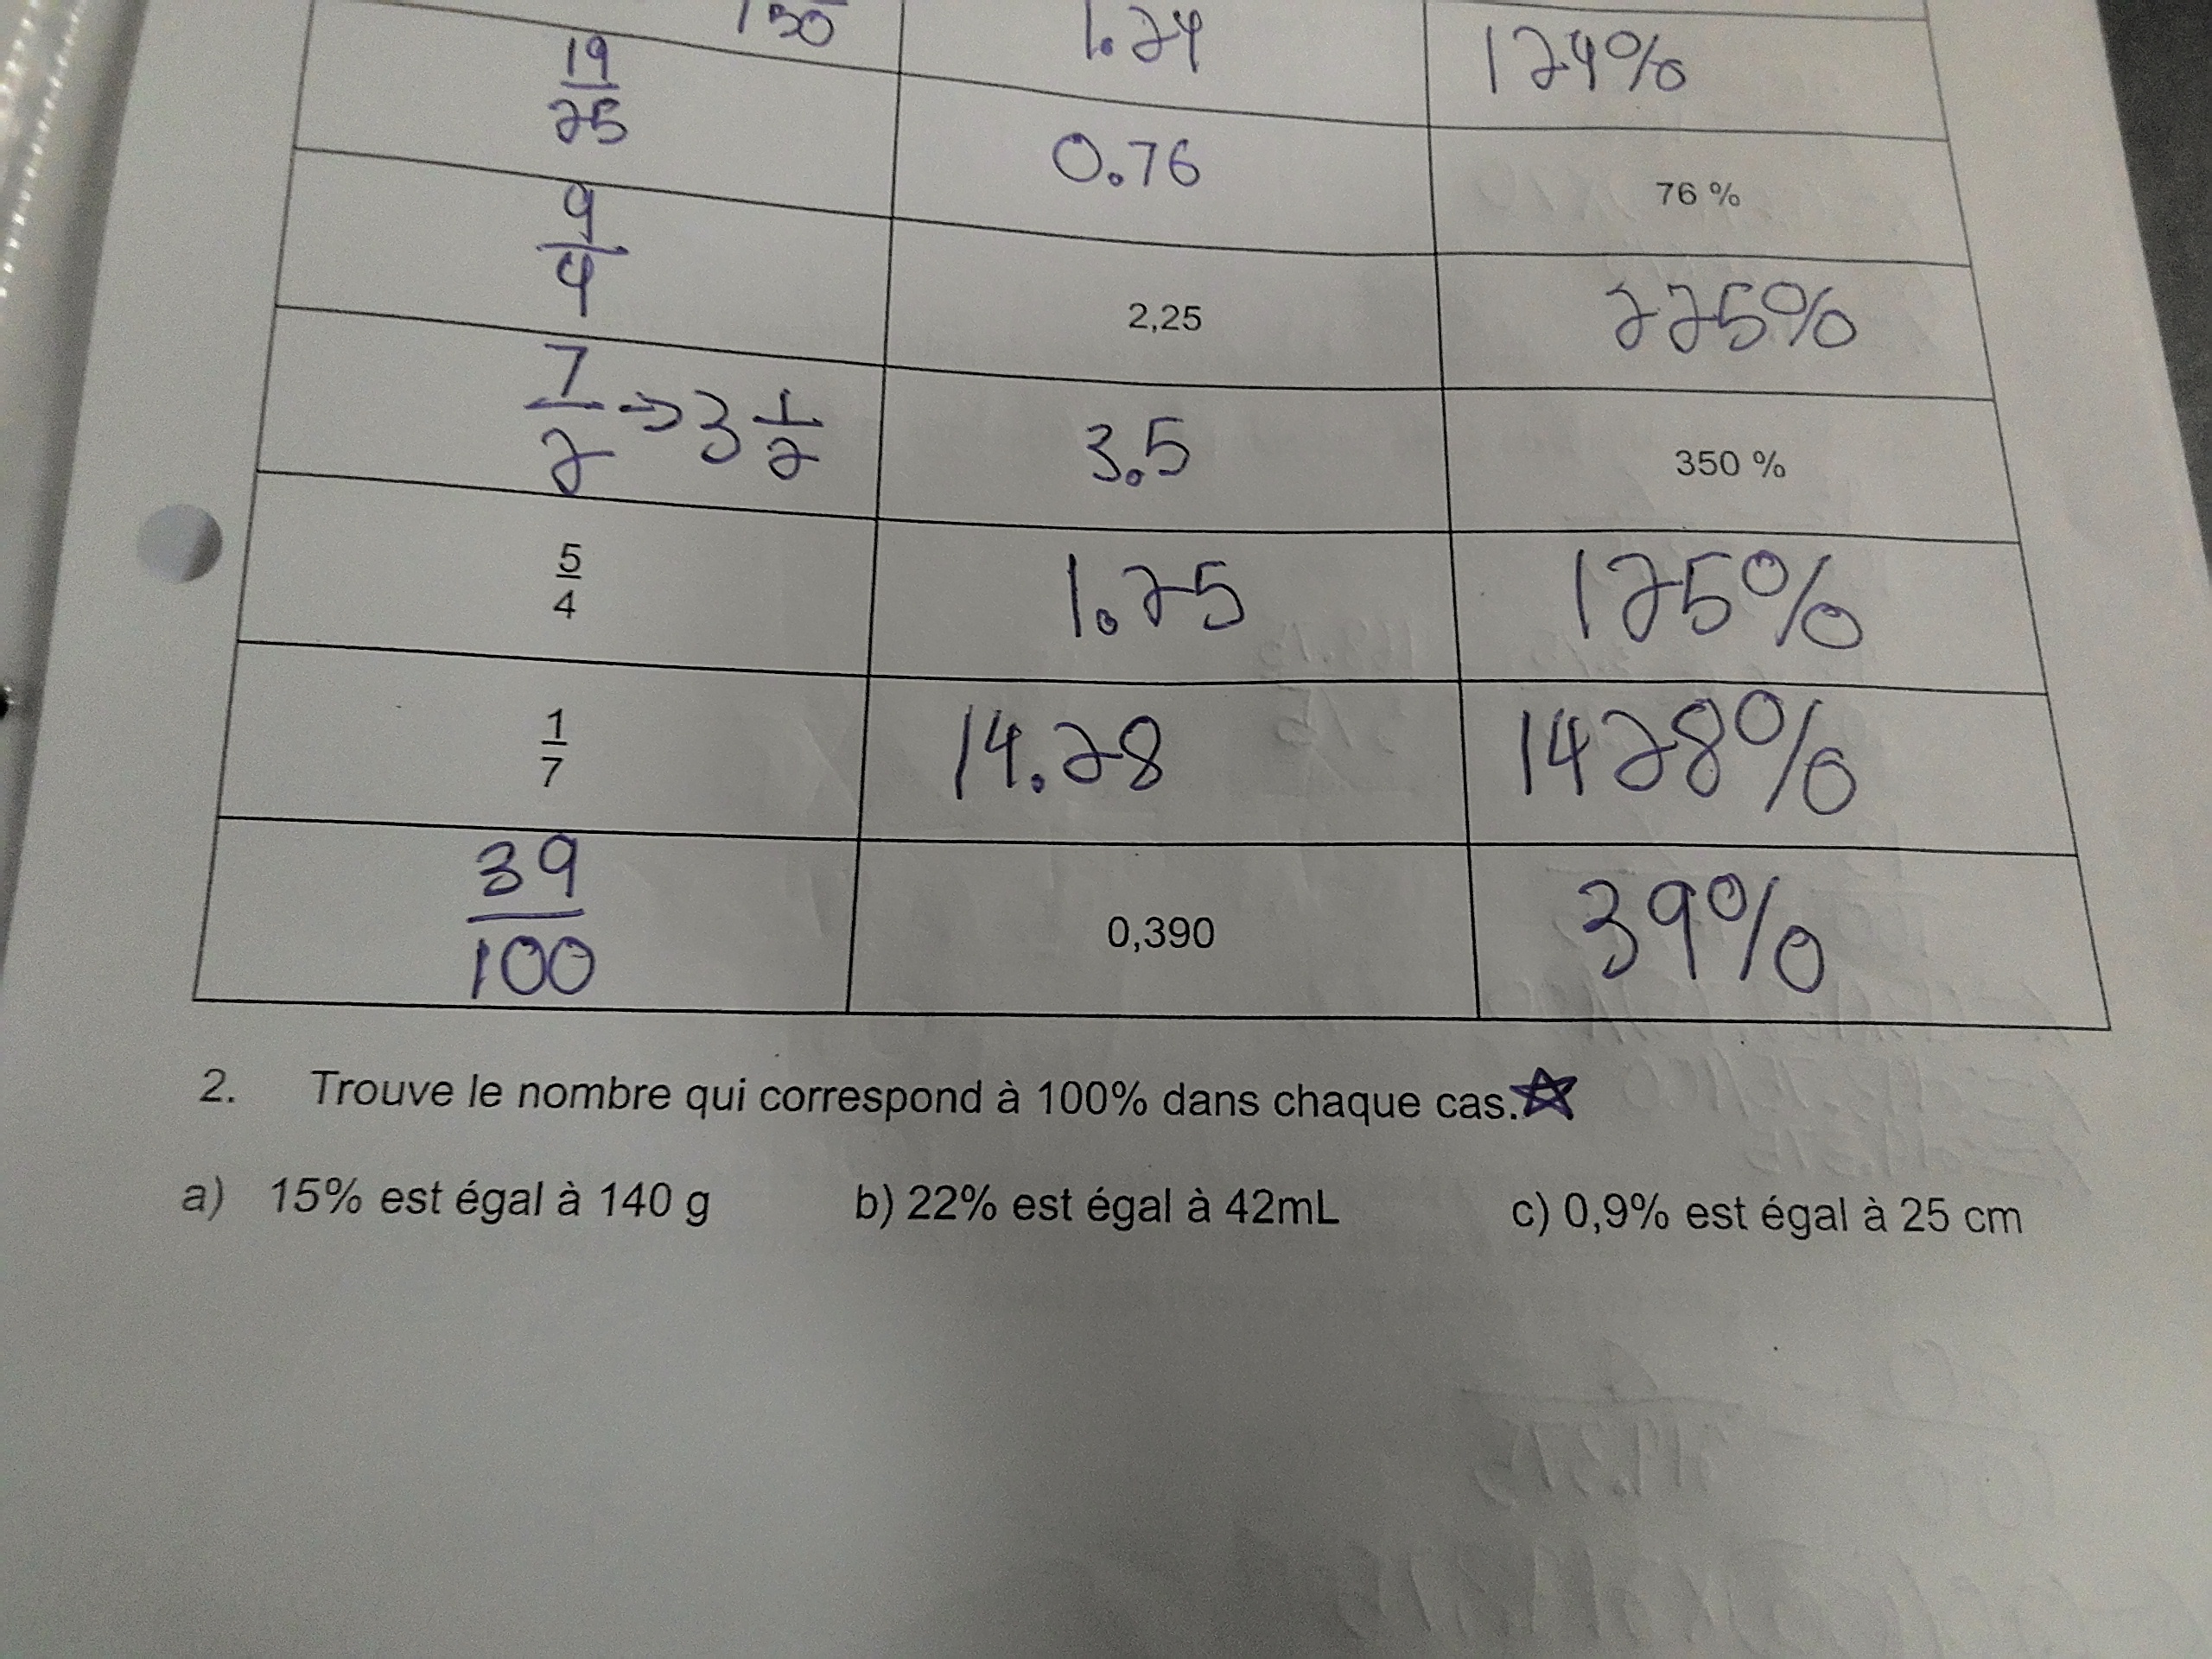 150 1.24 124%
19/25 0.76 76 %
9/4 2,25 225%
7/2 → 3 1/2 3.5 350 %
5/4 1.25 125%
1/7 14.28 1428%
39/100 0,390 39%
2. Trouve le nombre qui correspond à 100% dans chaque cas.
a) 15% est égal à 140 g b) 22% est égal à 42mL c) 0,9% est égal à 25 cm